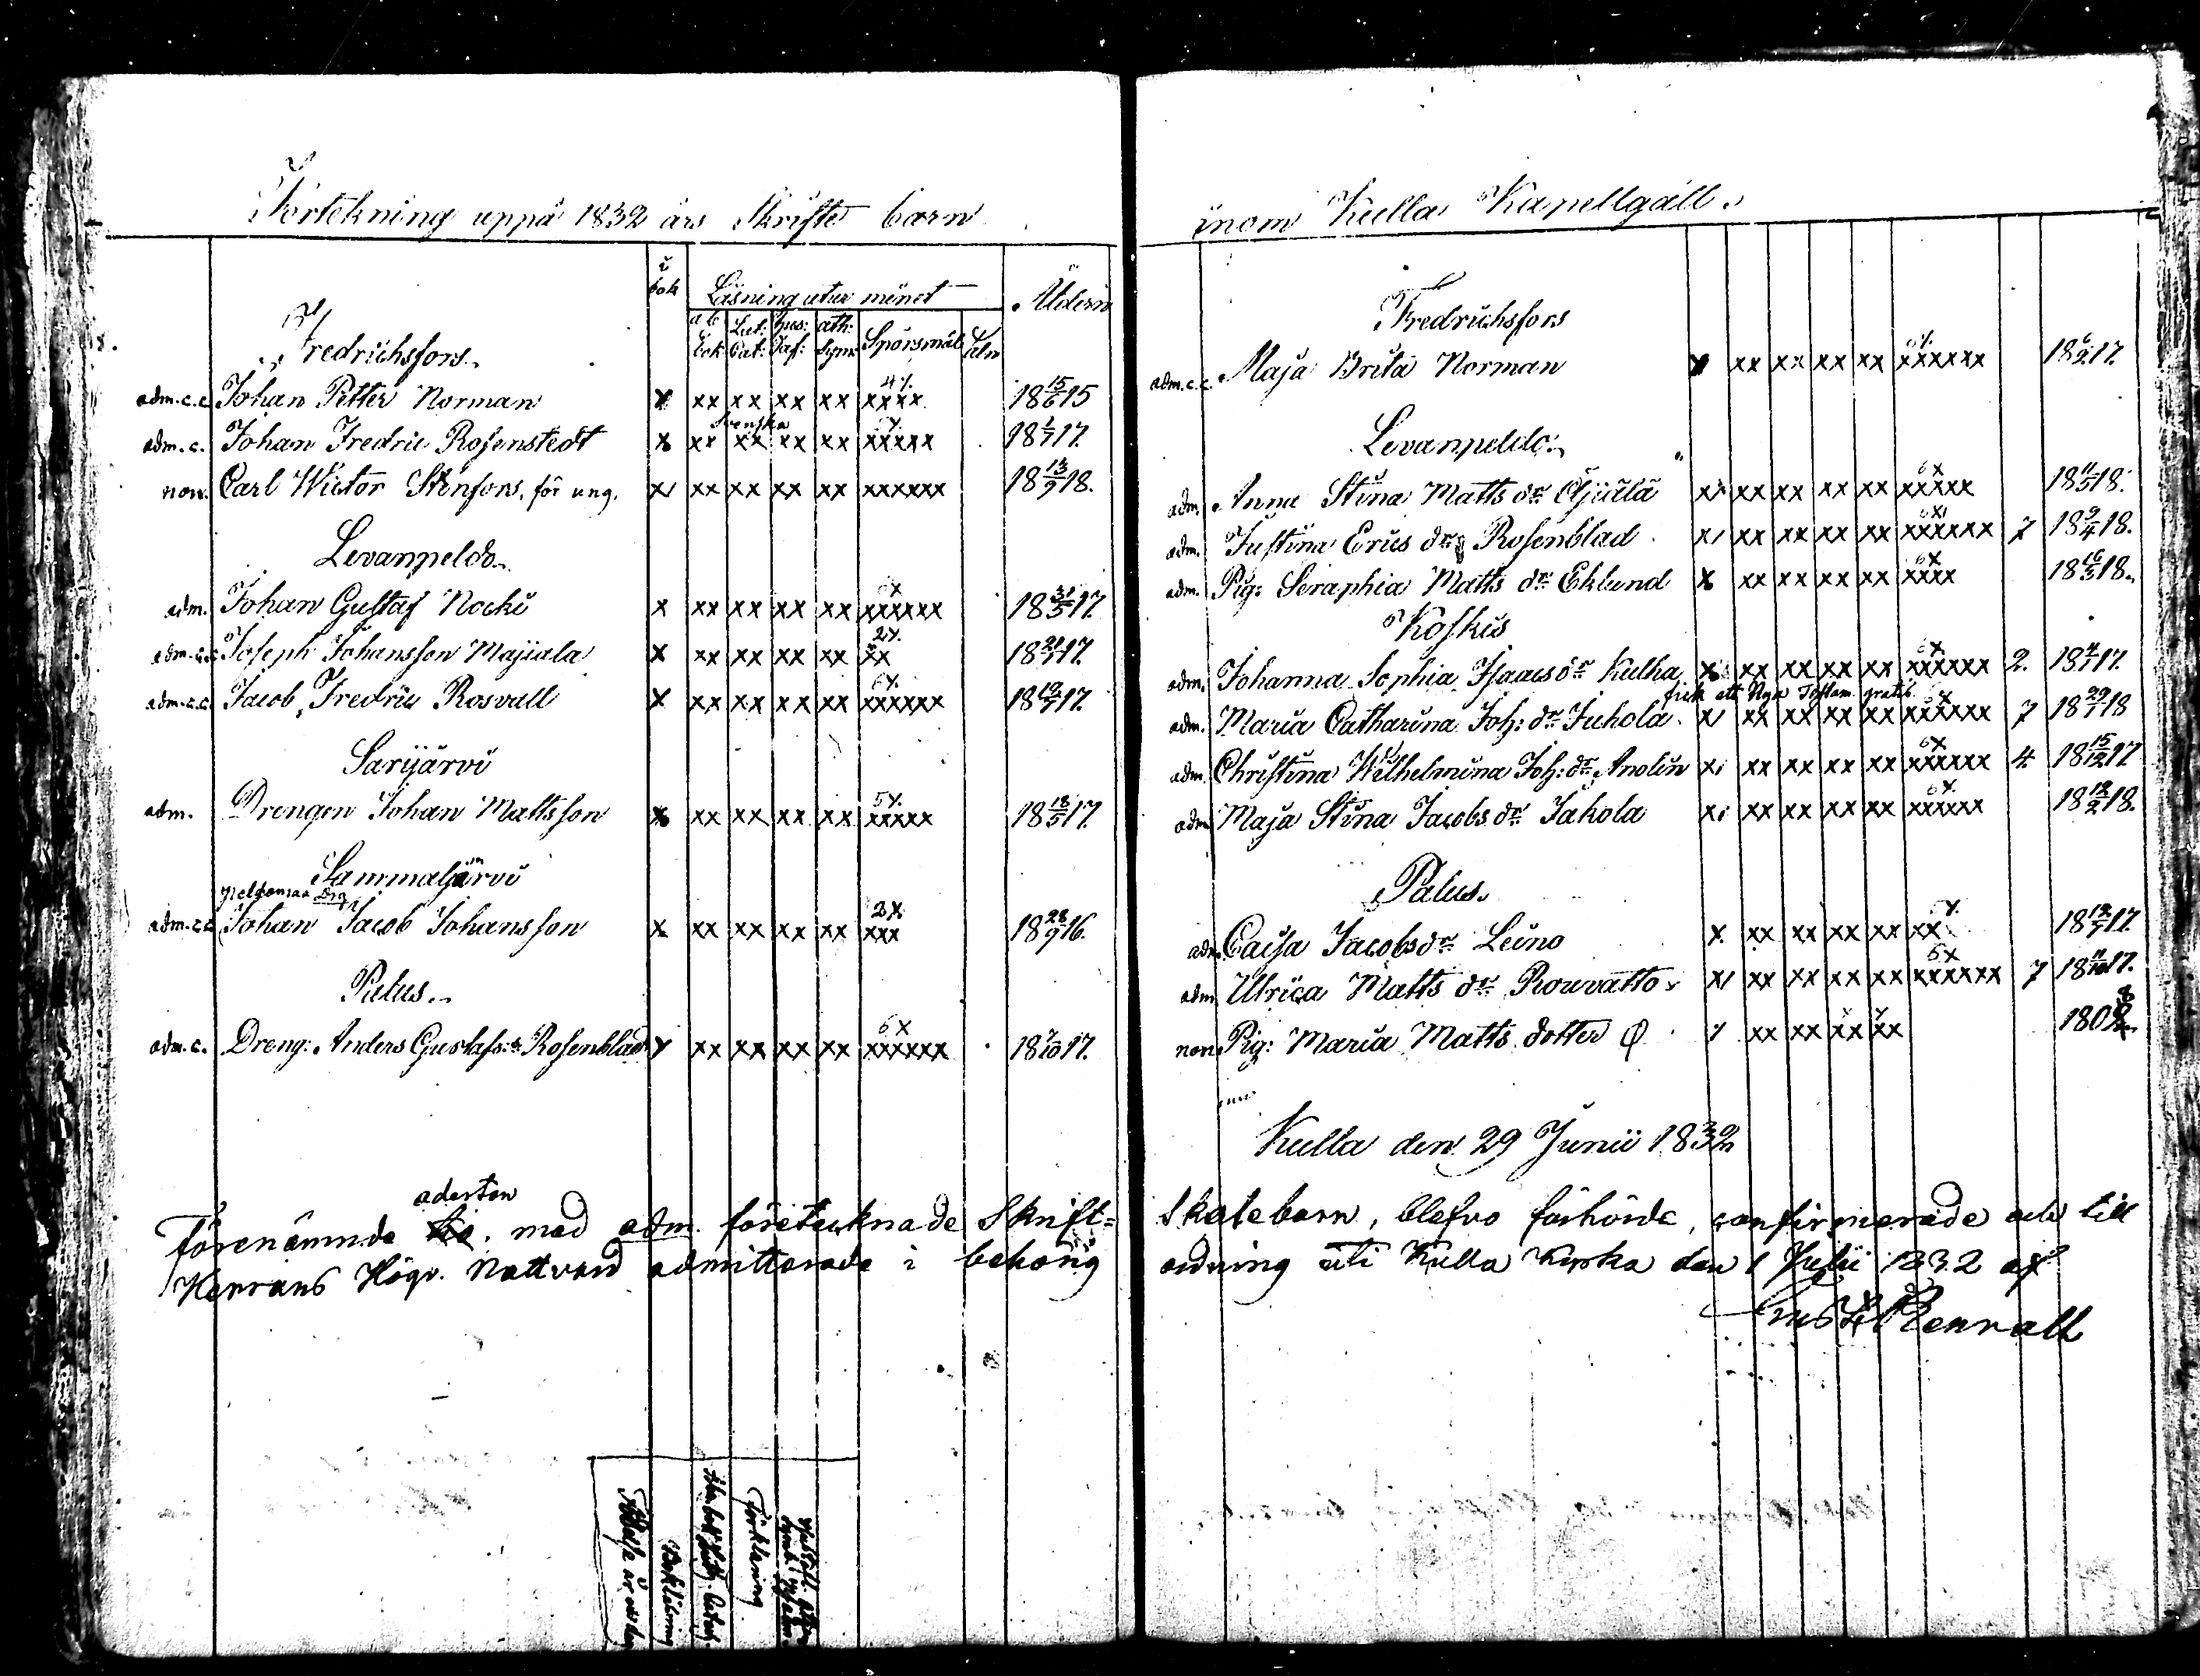 Förtekning uppå 1832 års Skrifte barn
i bok
Läsning utur minet
Åldern
ab bok
Lut: Cat:
Hus: Taf:
ath: Sym
Spörsmål
Fredrichsfors
adm. c. c. Johan Petter Norman x xx xx xx xx 4x. xxxx 18 15/6 15
Svenska
adm. c. Johan Fredric Rosenstedt x xx xx xx xx xxxxx 18 1/7 17.
non. Carl Wictor Stenfors, för ung. x xx xx xx xx xxxxxx 18 13/9 18.
Levanpeldo
adm. Johan Gustaf Nocki x xx xx xx xx xxxxxx 18 31/5 17.
adm. c. c. Joseph Johansson Majiala x xx xx xx xx 2x. xx 18 21/1 17.
adm. c. c. Jacob Fredric Rosvall x xx xx xx xx xxxxxx 17.
Sarijärvi
adm. Drengen Johan Mattsson x xx xx xx xx 5x. xxxxx 18 18/5 17.
Sammaljärvi
Peldomaa Drg
adm. c. c. Johan Jacob Johansson x xx xx xx xx 3x xxx 18 28/9 16.
Palus
adm. c. Dreng: Anders Gustafs: Rosenblad x xx xx xx xx 6x xxxxxx 18 7/10 17.
aderton
Förenämnde med adm. företeknade Skrift=
Herrans Högv. Nattvard admitterade i behörig
Förklaring
inom Kulla Kapellgäll.
Fredrichsfors
adm. c. c. Maja Brita Norman x xx xx xx xx xxxxxx 18 6/2 17.
Levanpeldo
adm. Anna Stina Matts dr Ojiälä x xx xx xx xx 6x xxxxx 18 11/5 18.
adm. Justina Erics dr Rosenblad x xx xx xx xx 6x xxxxxx 7 18 9/4 18.
adm. Pig: Seraphia Matts dr Eklund x xx xx xx xx 6x xxxx 18 16/3 18.
Koskis
adm. Johanna Sophia Isaacs dr Kulha x xx xx xx xx 6x xxxxxx 2. 17.
fick ett Nya Testam. gratis
adm. Maria Catharina Joh: dr Juhola x xx xx xx xx 6x xxxxxx 7 18 29/1 18
adm. Christina Wilhelmina Joh: dr Anolin x xx xx xx xx 6x xxxxxx 4 18 15/12 17
adm. Maja Stina Jacobs dr Jakola x xx xx xx xx xxxxx 18 12/2 18.
Palus
adm. Caisa Jacobs dr Leino x xx xx xx xx xx 17.
adm. Ulrica Matts dr Rouvatto x xx xx xx xx 6x xxxxxx 7 18 11/10 17.
non. Pig: Maria Matts dotter xx xx xx xx
Kulla den 29 Junii 1832
Skolebarn, blefvo förhörde, confirmerade och till
ordning uti Kulla Kyrka den 1 Julii 1832 af
Gust. Renvall